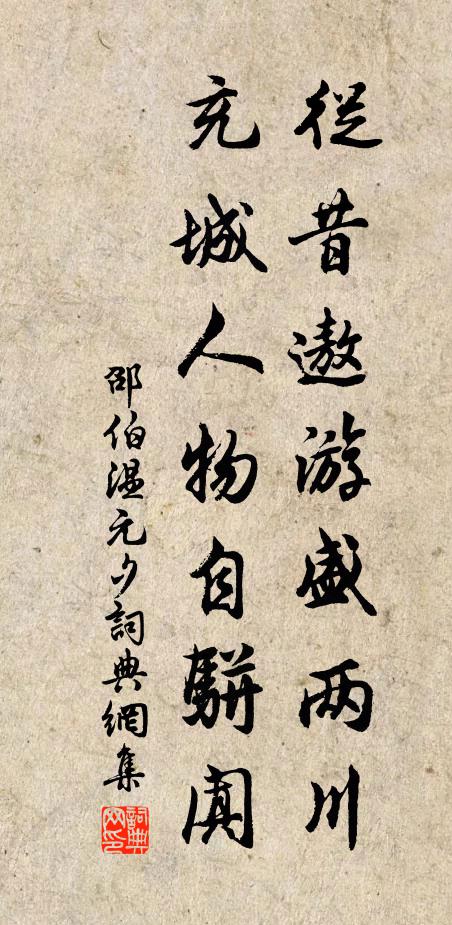 從昔遨游盛两川
充城人物自駢闐
邵伯温元夕詞典網集
詞典网印